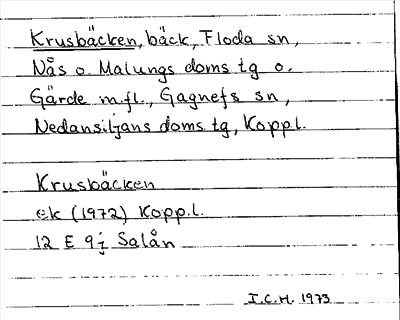 Krusbäcken, bäck, Floda sn,
Nås o. Malungs doms tg o.
Gärde m.fl., Gagnefs sn,
Nedansiljans doms.tg, Koppl.
Krusbäcken
ek (1972) Koppl.
12 E 9j Salån
I.C.H. 1973